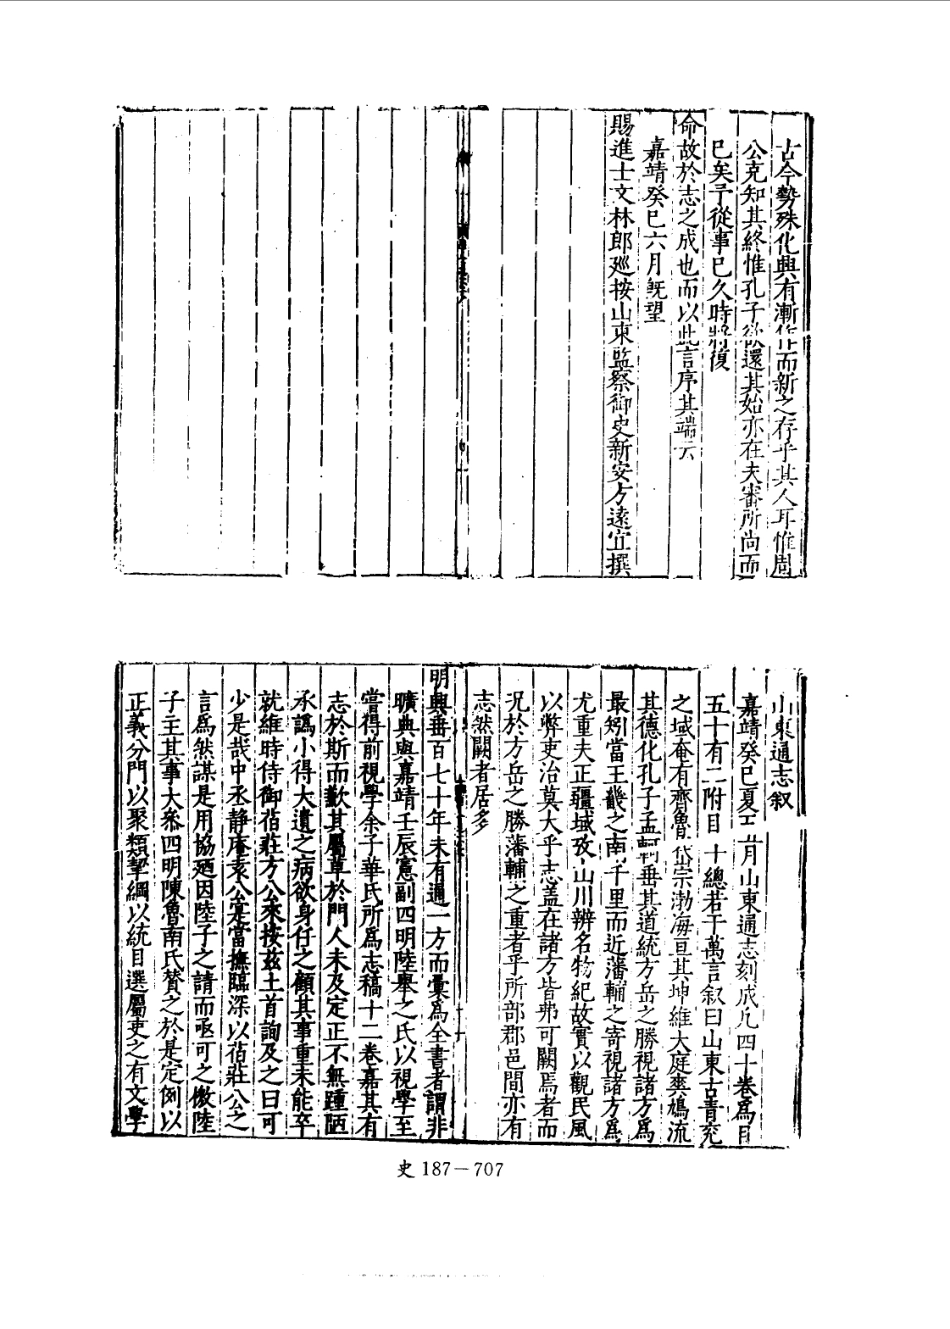 古今勢殊化與有漸作而新之存乎其人耳惟周
公克知其終惟孔子欲還其始亦在夫審所尚而
已矣予從事已久時將復
命故於志之成也而以此言序其端云
嘉靖癸巳六月旣望
賜進士文林郎廵按山東監察御史新安方遠宜撰
山東通志叙
嘉靖癸巳夏五月山東通志刻成凡四十卷爲目
五十有二附目十總若干萬言叙曰山東古青兖
之域奄有齊魯岱宗渤海亘其坤維大庭爽鳩流
其德化孔子孟軻垂其道統方岳之勝視諸方爲
最矧當王畿之南千里而近藩輔之寄視諸方爲
尤重夫正疆域攷山川辨名物紀故實以觀民風
以弊吏冶莫大乎志盖在諸方皆弗可闕焉者而
况於方岳之勝藩輔之重者乎所部郡邑間亦有
志然闕者居多
明興垂百七十年未有通一方而彙爲全書者謂非
曠典與嘉靖壬辰憲副四明陸舉之氏以視學至
嘗得前視學余子華氏所爲志稿十二卷嘉其有
志於斯而歎其屬草於門人未及定正不無踵陋
承譌小得大遺之病欲身任之顧其事重未能卒
就維時侍御菭莊方公來按兹土首詢及之曰可
少是哉中丞靜庵袁公寔當撫臨深以菭莊公之
言爲然謀是用協廼因陸子之請而亟可之俶陸
子主其事大叅四明陳魯南氏賛之於是定例以
正義分門以聚類挈綱以統目選屬吏之有文學
史 187－707